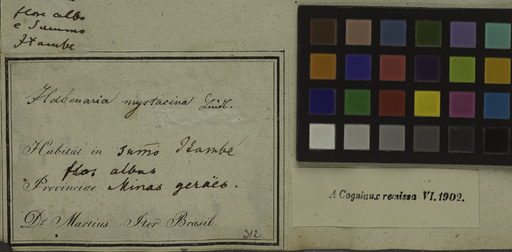 flore albo
e Summo
Itambe
Habenaria mystacina Lindl.
Habitat in sum̃o Itambé
flos albus
Provinciae Minas geraës.
Dr Martius Iter Brasil.
312
A Cogniaux remissa VI. 1902.